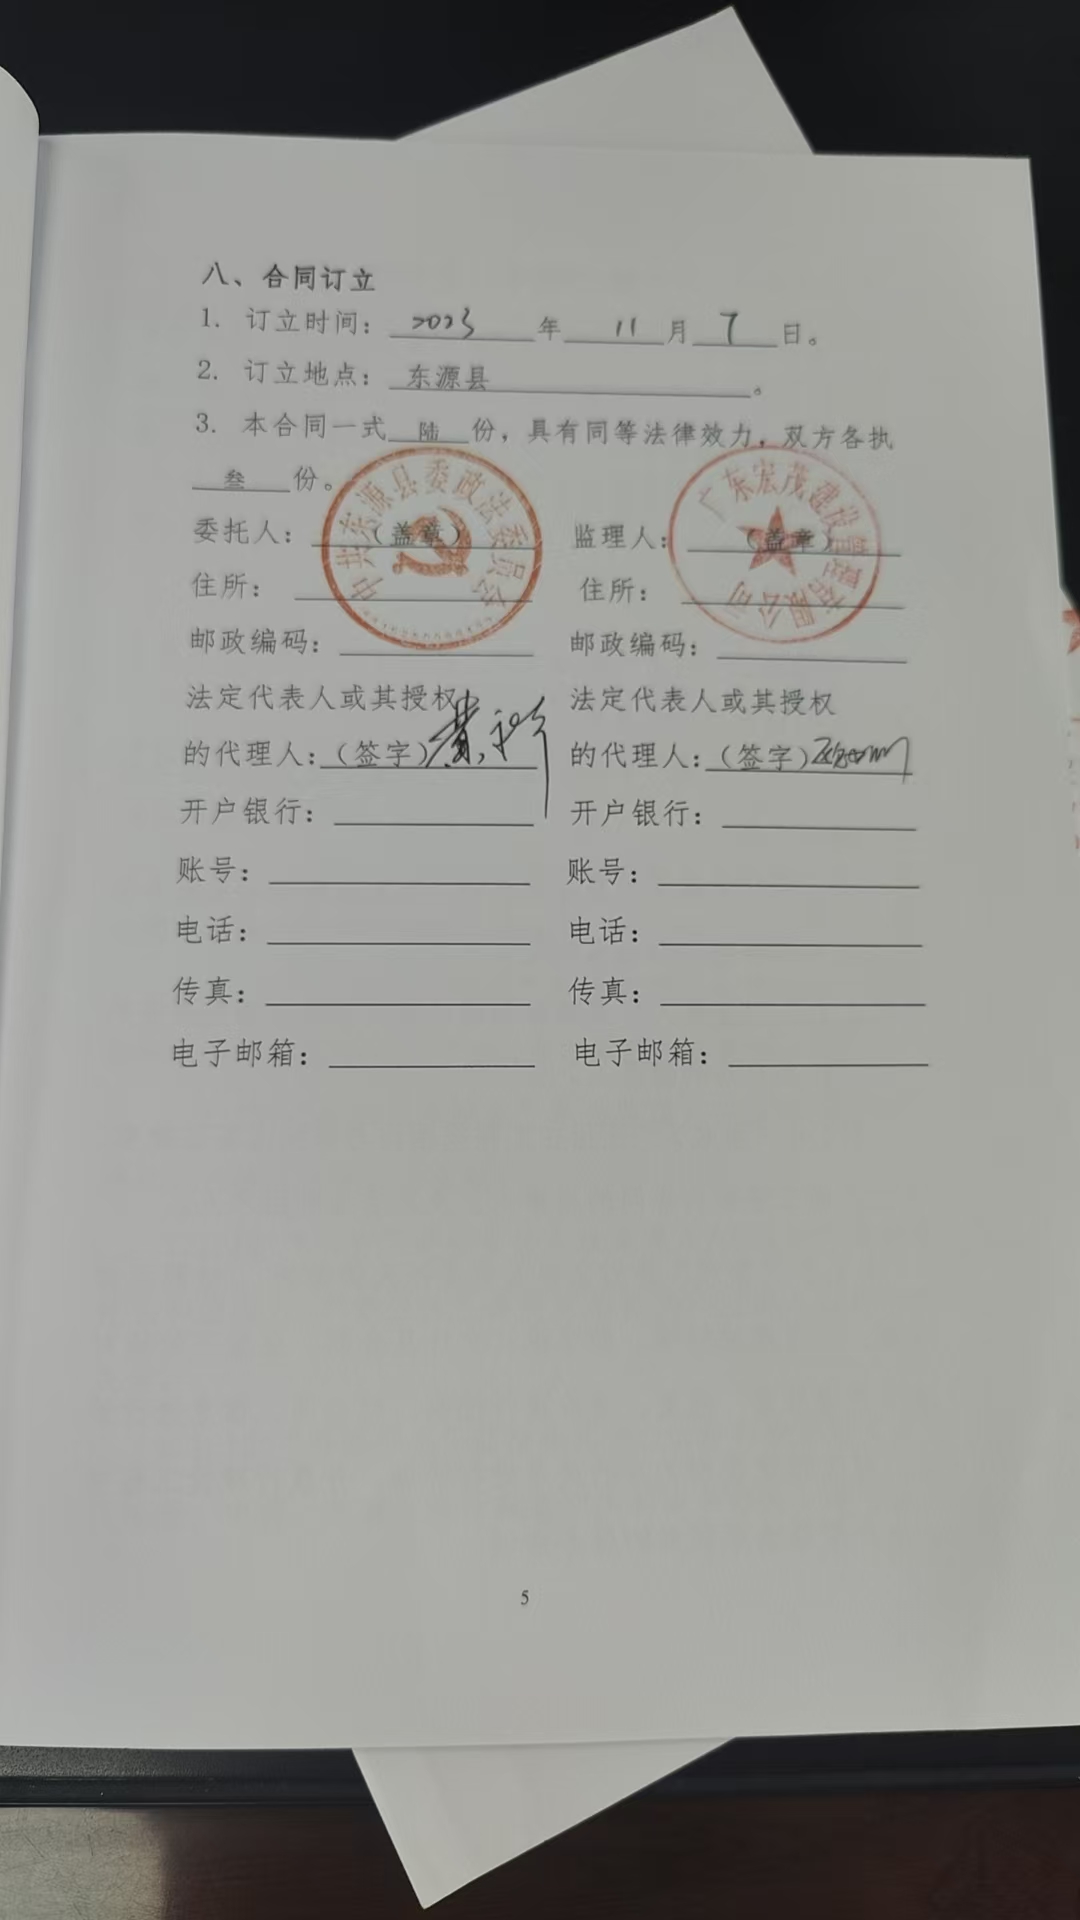 八、合同订立
1. 订立时间：2023年11月7日。
2. 订立地点：东源县。
3. 本合同一式陆份，具有同等法律效力，双方各执
叁份。
委托人：（盖章） 监理人：（盖章）
中共东源县委政法委员会
广东宏茂建设管理有限公司
住所： 住所：
邮政编码： 邮政编码：
法定代表人或其授权 法定代表人或其授权
的代理人：（签字） 的代理人：（签字）
开户银行： 开户银行：
账号： 账号：
电话： 电话：
传真： 传真：
电子邮箱： 电子邮箱：
5